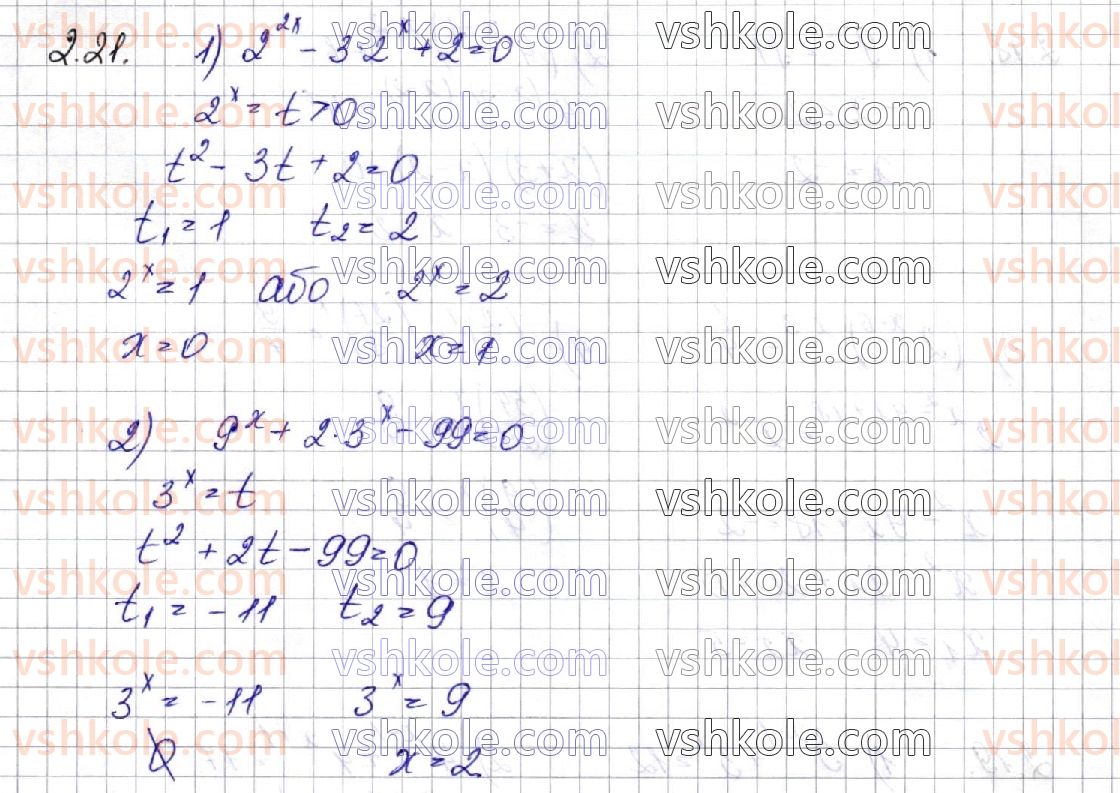 2.21. 1) 2^{2x} - 3·2^x + 2 = 0
2^x = t > 0
t^2 - 3t + 2 = 0
t_1 = 1 t_2 = 2
2^x = 1 або 2^x = 2
x = 0 x = 1
2) 9^x + 2·3^x - 99 = 0
3^x = t
t^2 + 2t - 99 = 0
t_1 = -11 t_2 = 9
3^x = -11 3^x = 9
∅ x = 2
vshkole.com vshkole.com vshkole.com vshkole.com
vshkole.com vshkole.com vshkole.com vshkole.com
vshkole.com vshkole.com vshkole.com vshkole.com
vshkole.com vshkole.com vshkole.com vshkole.com
vshkole.com vshkole.com vshkole.com vshkole.com
vshkole.com vshkole.com vshkole.com vshkole.com
vshkole.com vshkole.com vshkole.com vshkole.com
vshkole.com vshkole.com vshkole.com vshkole.com
vshkole.com vshkole.com vshkole.com vshkole.com
vshkole.com vshkole.com vshkole.com vshkole.com